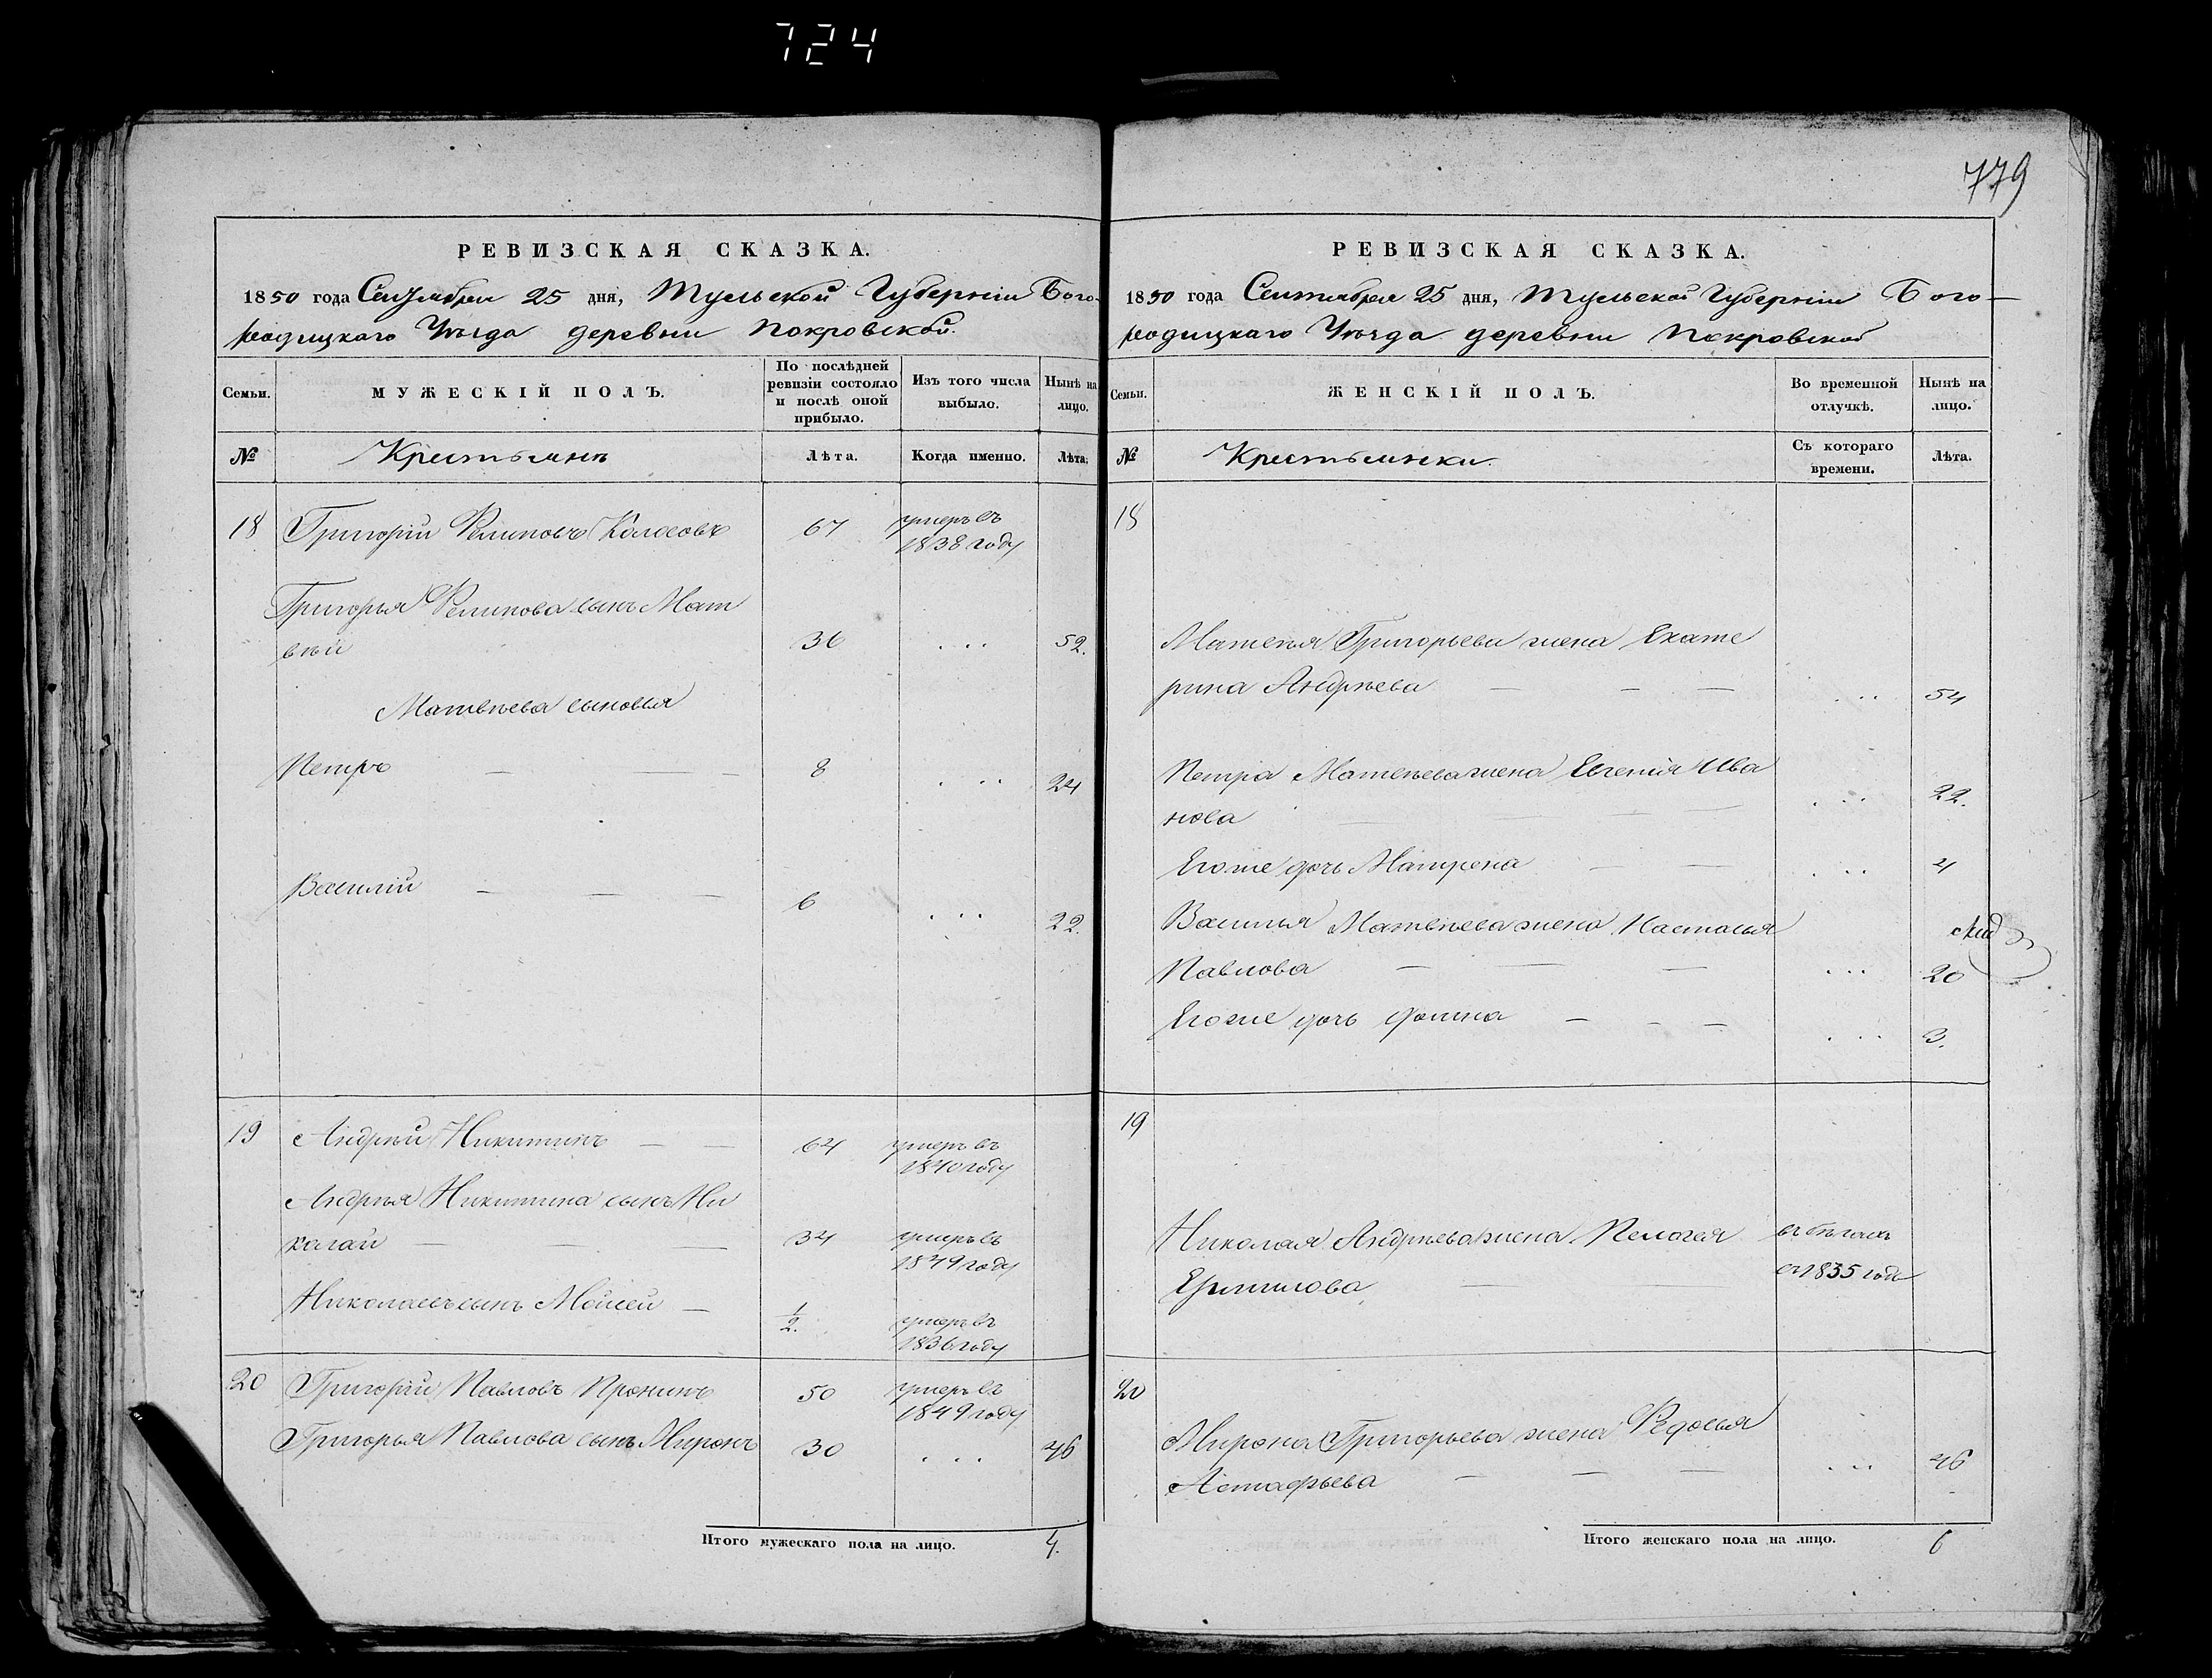 724
779
РЕВИЗСКАЯ СКАЗКА.
1850 года Сентября 25 дня, Тульской Губерніи Бого-
родицкаго Уѣзда деревни Покровской.
Семьи.
МУЖЕСКІЙ ПОЛЪ.
По послѣдней ревизіи состояло и послѣ оной прибыло.
Изъ того числа выбыло.
Нынѣ на лицо.
№
Крестьянъ
Лѣта.
Когда именно.
Лѣта.
18 Григорій Филиповъ Колосовъ 67 умеръ въ
1838 году
Григорья Филипова сынъ Мат
вѣй 36 . . . 52.
Матвѣева сыновья
Петръ — — — 8 . . . 24
Василій — — — 6 . . . 22.
19 Андрѣй Никитинъ — — 64 умеръ въ
1840 году
Андрѣя Никитина сынъ Ни
калай — — — 34 умеръ въ
1849 году
Николаевъ сынъ Мойсей — 1/2. умеръ въ
1836 году
20 Григорій Павловъ Пронинъ 50 умеръ въ
1849 году
Григорья Павлова сынъ Миронъ 30 . . . 46
Итого мужескаго пола на лицо. 4.
РЕВИЗСКАЯ СКАЗКА.
1850 года Сентября 25 дня, Тульской Губерніи Бого-
родицкаго Уѣзда деревни Покровской
Семьи.
ЖЕНСКІЙ ПОЛЪ.
Во временной отлучкѣ.
Нынѣ на лицо.
№
Крестьянки.
Съ котораго времени.
Лѣта.
18
Матвѣя Григорьева жена Екате
рина Андрѣева — — — . . . 54
Петра Матвѣева жена Евгенія Ива
нова — — — . . . 22.
Егоже дочь Матрена — — . . . 4
Василья Матвѣева жена Настасья
Павлова — — — . . . 20
Егоже дочь Домна — — — . . . 3.
19
Николая Андрѣева жена Пелогея въ бѣгахъ
Ермилова — — съ 1835 года
20
Мирона Григорьева жена Федосья
Астафьева — — — . . . 46
Итого женскаго пола на лицо. 6